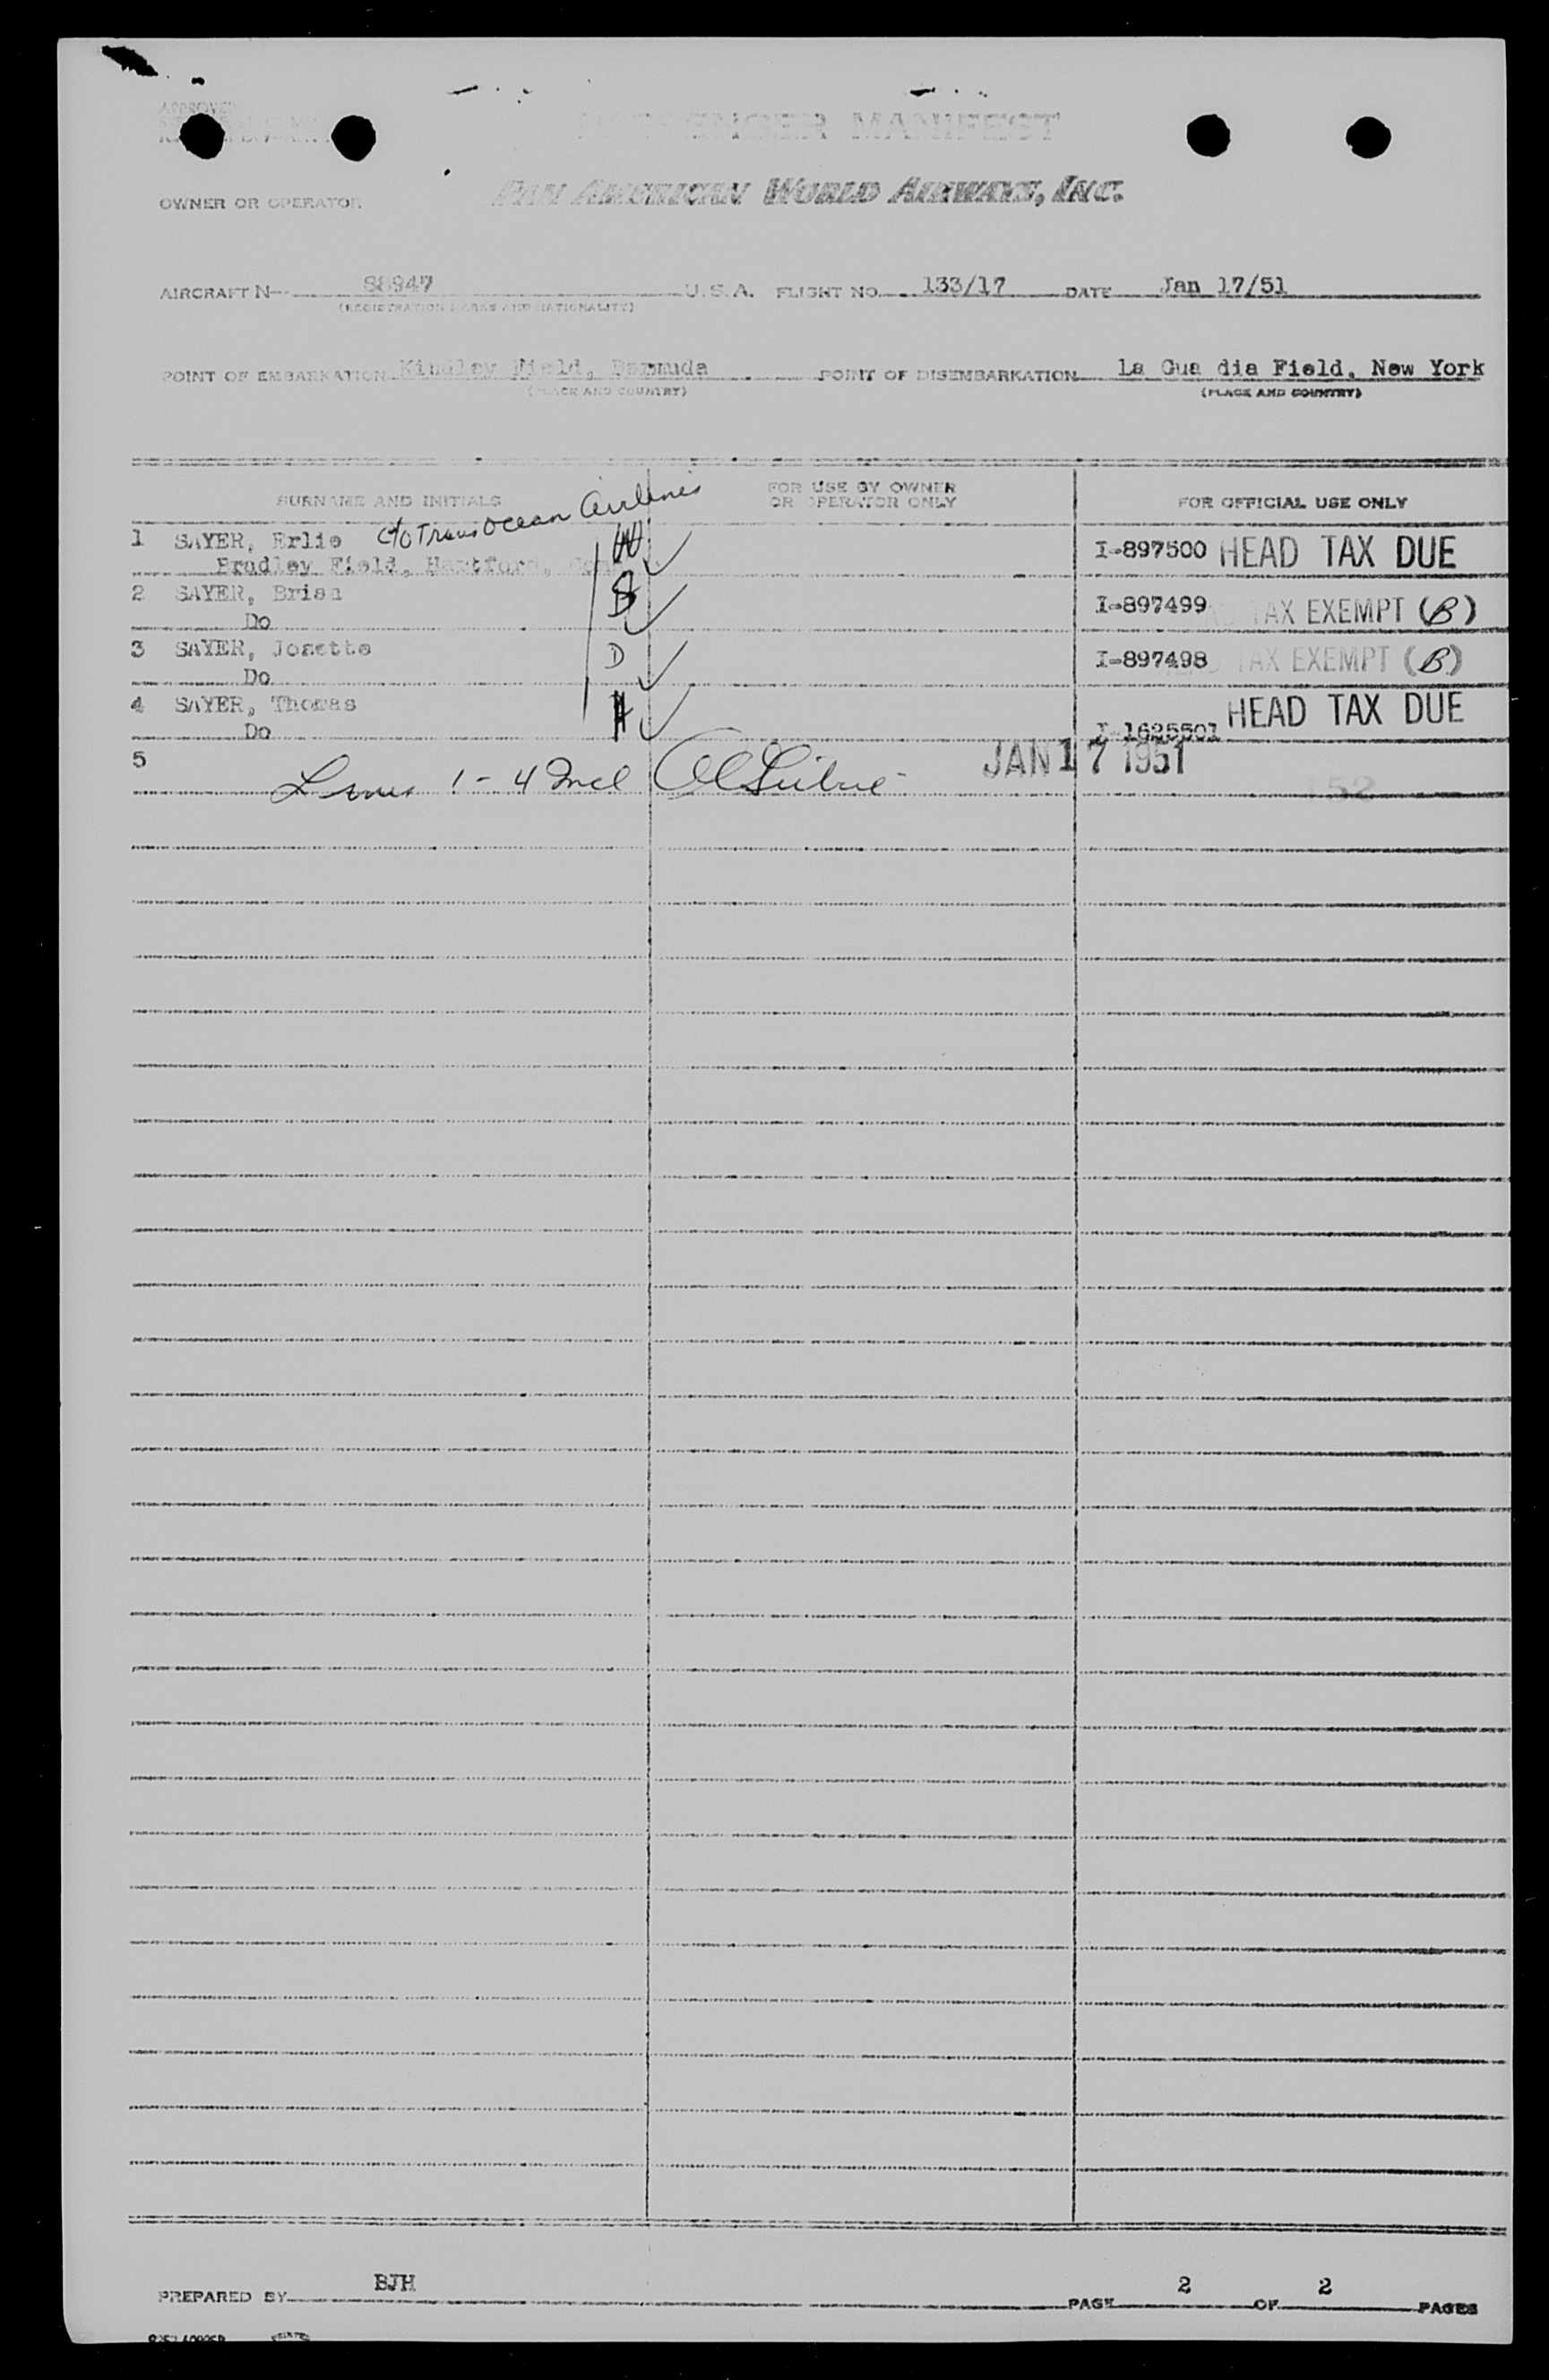 APPROVED
PASSENGER MANIFEST
OWNER OR OPERATOR PAN AMERICAN WORLD AIRWAYS, INC.
AIRCRAFT N— 88947 U.S.A. FLIGHT NO. 133/17 DATE Jan 17/51
(REGISTRATION MARKS AND NATIONALITY)
POINT OF EMBARKATION Kindley Field, Bermuda POINT OF DISEMBARKATION La Gua dia Field, New York
(PLACE AND COUNTRY) (PLACE AND COUNTRY)
SURNAME AND INITIALS FOR USE BY OWNER OR OPERATOR ONLY FOR OFFICIAL USE ONLY
1 SAYER, Erlie c/o TransOcean Airlines W I-897500 HEAD TAX DUE
Bradley Field, Hartford, Conn
2 SAYER, Brian I-897499 TAX EXEMPT (B)
Do
3 SAYER, Josette D I-897498 TAX EXEMPT (B)
Do
4 SAYER, Thomas H HEAD TAX DUE
Do I-1625501
5 JAN 17 1951
Lines 1-4 Incl 152
PREPARED BY BJH PAGE 2 OF 2 PAGES